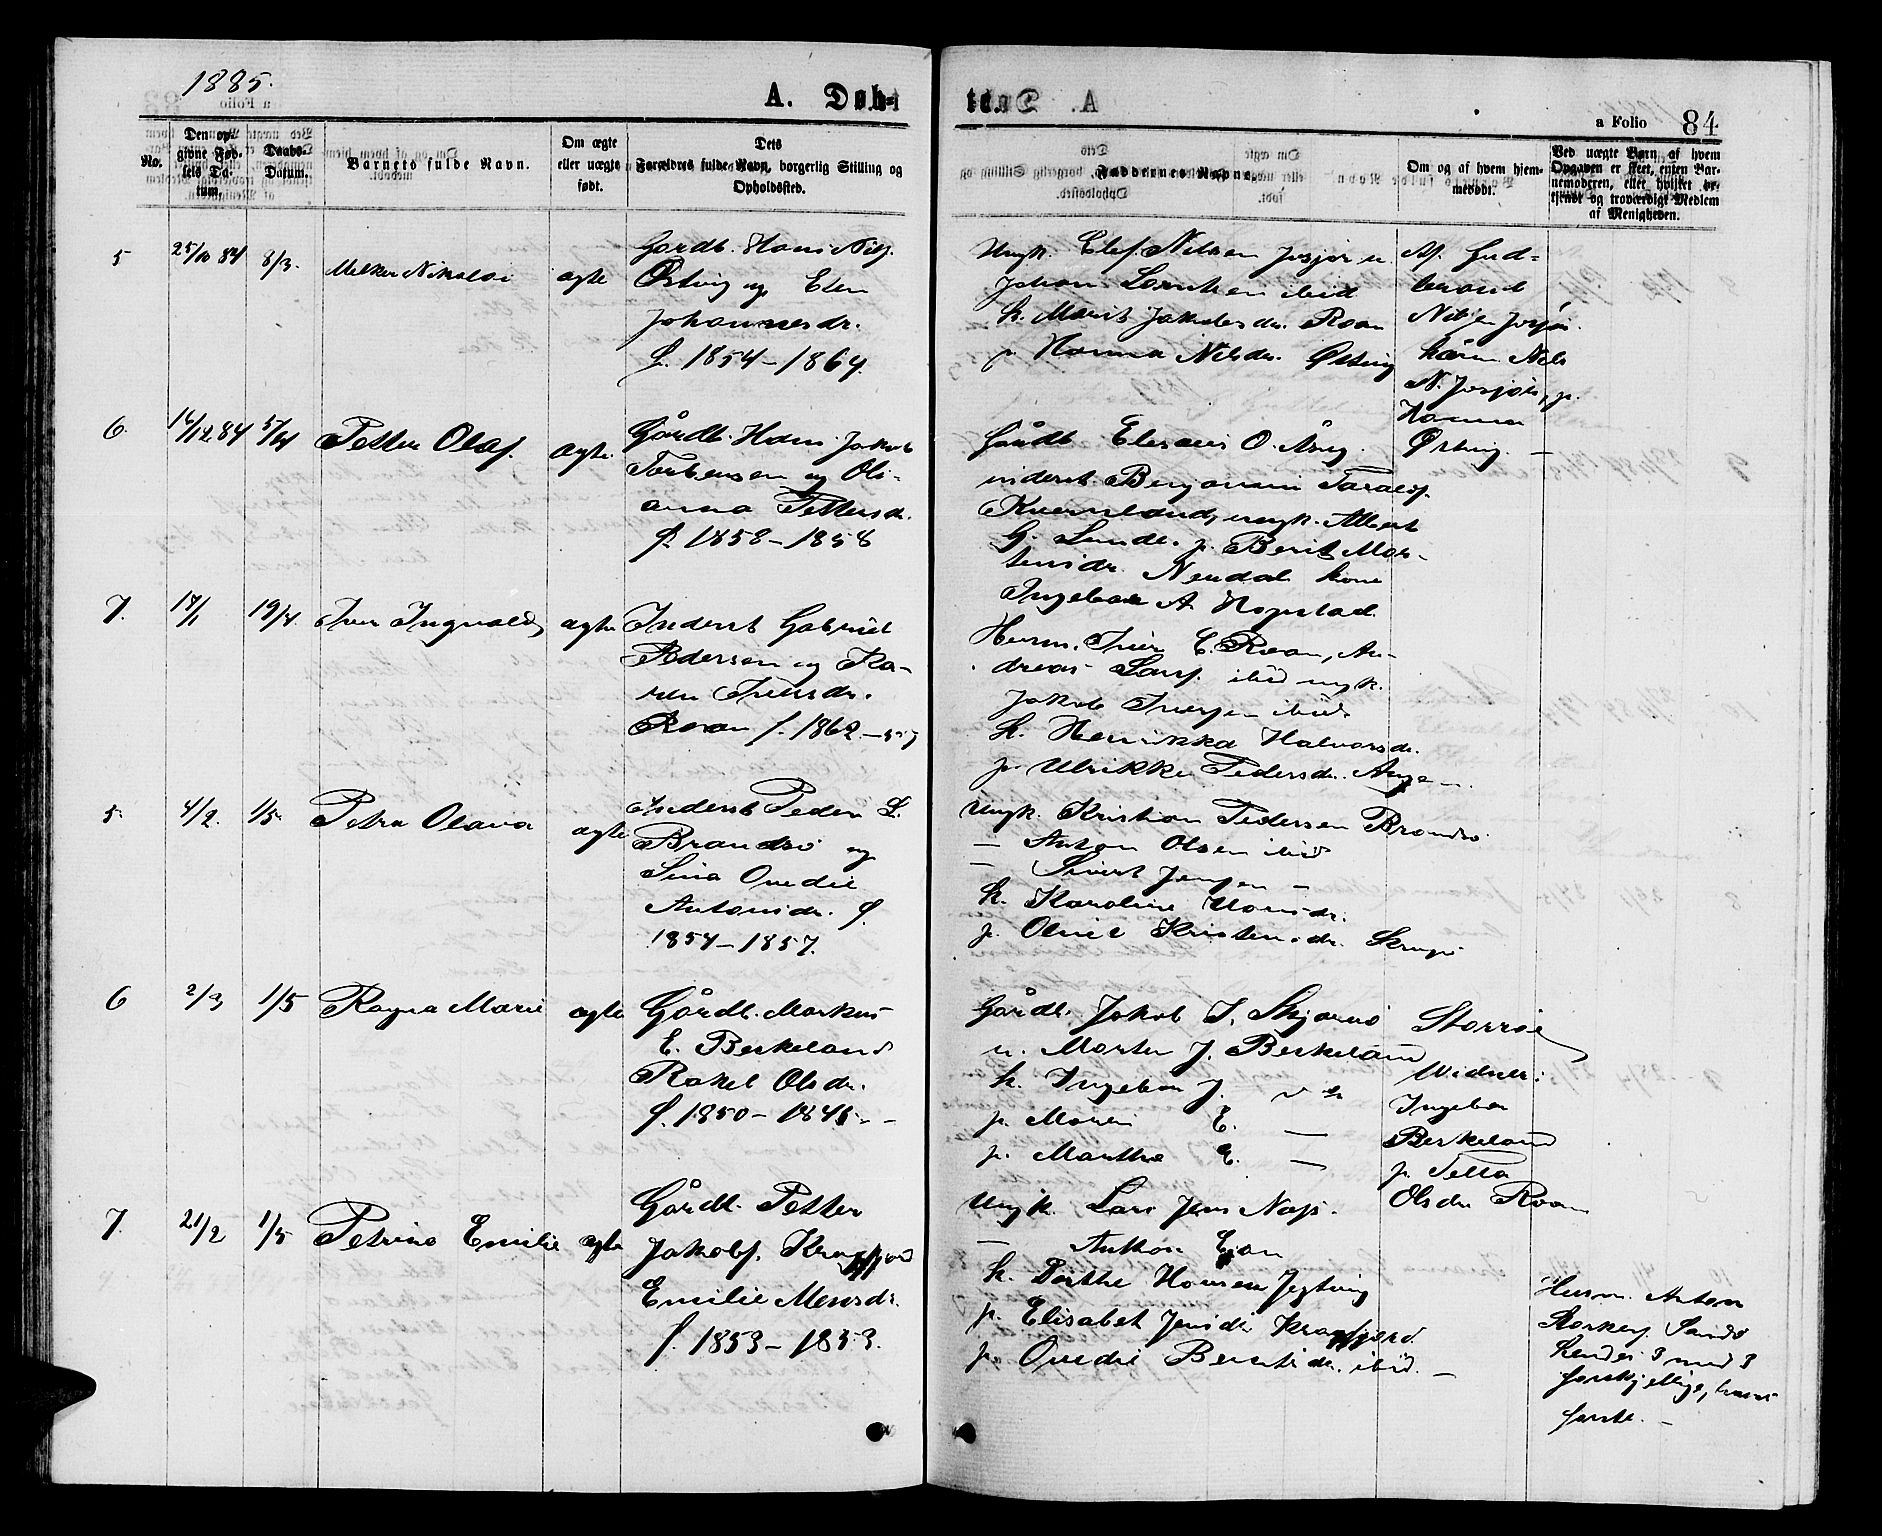 1885.
A. Døb-
a Folio 84
No.
Den op-
givne Fød-
sels Da-
tum.
Daabs-
Datum.
Barnets fulde Navn.
Om ægte
eller uægte
født.
Dets
Forældres fulde Navn, borgerlig Stilling og
Opholdssted.
Faddernes Navne.
Om og af hvem hjem-
medøbt.
Ved uægte Barn af hvem
Opgaven er skeet, enten Bar-
nemoderen, eller hvilket or-
tsendt og troværdigt Medlem
af Menigheden.
5 25/10 84 8/3. Melker Nikolai ægte
Gårdb. Hans Nilj.
Østvig og Elen
Johannesdr.
f. 1854 - 1864.
Ungk. Elef. Nilsen Josjør u.
Johan Lorntsen ibid
k. Marit Jakobsdr. Roan
p. Hanna Nilsdr. Østvig
Af Gud-
brand
Nilsen Josjør.
Nils
N. Josjør, p.
Hanna
Østvig. -
6. 16/12 84 5/4 Petter Olaf. ægte.
Gårdb. Hans Jakob
Torbensen og Oli-
anna Pettersdr.
f. 1858 - 1858
Gårdb. Eleseus O.
inderst. Benjamin Taralds.
Kvernland, ungk. Albert
G. Lunde. p. Berit Mor-
tensdr. Neudal kone
Ingebor A Hopstad.
7. 14/1 19/4. Iver Ingvald ægte
Inderst Gabriel
Pedersen og Ka-
ren Iversdr.
Roan f. 1862 - 57
Husm. Iver E. Roan, An-
dreas Lars. ibid ungk.
Jakob Iversen ibid.
k. Henrikka Halvorsdr.
p. Ulrikke Pedersdr.
5. 4/2. 1/5. Petra Olava ægte
Inderst Peder L.
Brandsø og
Sina Ovedie
Antonsdr. f.
1854 - 1857.
Ungk. Kristian Pedersen Brandsø
- Anton Olsen ibid
- Sivert Jensen -
k. Karoline Hansdr.
p. Oline Kristensdr.
6 2/3 1/5 Ragna Marie ægte
Gårdb. Markus
E. Beskeland
Rakel Olsdr.
f. 1850 - 1845 -
Gårdb. Jakob J. Skjærvø
u. Morten J. Beskeland
k. Ingebor J.
p. Maren E. -
p. Marthe E. -
Storrøe
Widner:
Ingebor
Beskeland
p. Petta
Olsdr Roan
7. 21/2 1/5 Petrine Emilie ægte
Gårdb. Petter
Jakobs. Kragfjord
Emilie Mensdr.
f. 1853 - 1853.
Ungk. Lars Jens Næss.
- Anthon
k. Dorthe Hansen Jegtvig
p. Elisabet Jensdr Kragfjord
p. Ovedie Berntsdr. ibid. -
Husm. Anton
Sandø
hendes 3 med 3
forskjellige, hans
første. -